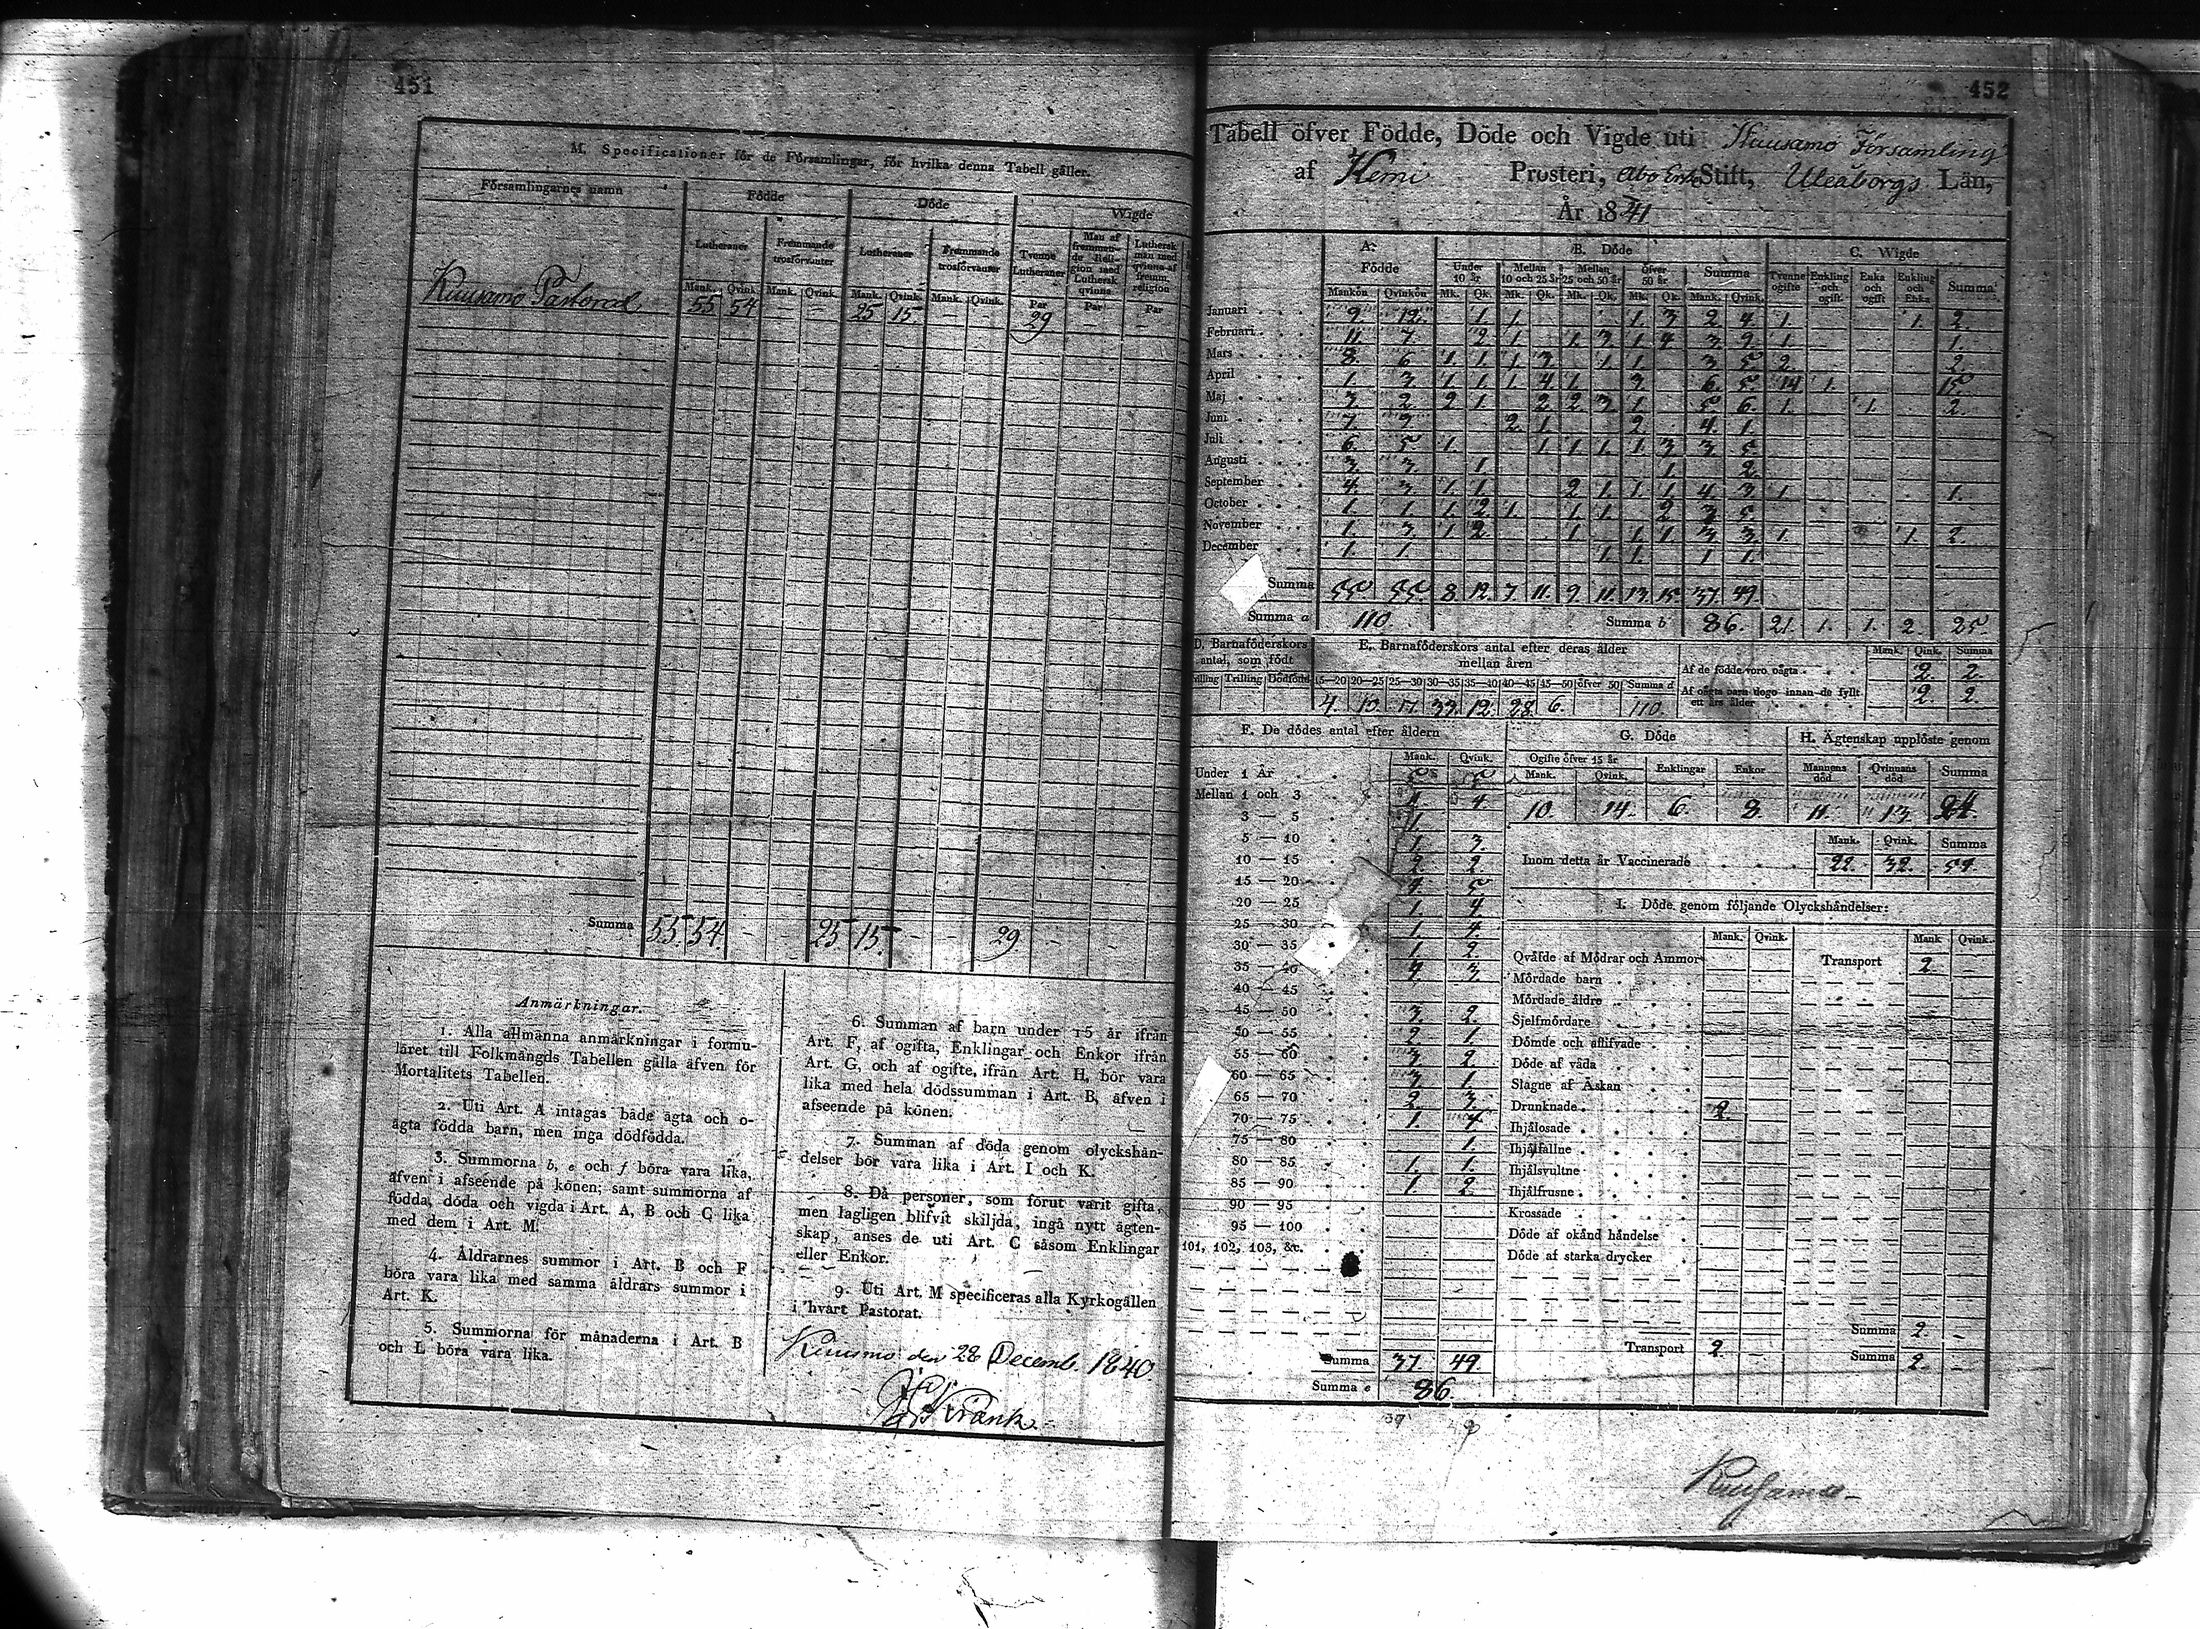 451
M. Specificationer för de Församlingar, för hvilka denna Tabell gäller.
Församlingarnes namn Födde Döde Wigde
Lutheraner Främmande trosförvanter Lutheraner Främmande trosförvanter Tvenne Lutheraner Man af fremmande Religion med Luthersk qvinna Luthersk man med qvinna af fremm religion
Mank. Qvink. Mank. Qvink. Mank. Qvink. Mank. Qvink. Par Par Par
Kuusamo Pastorat 55 54 — — 25 15 — — 29 — —
Summa 55 54 — — 25 15 — — 29 — —
Anmärkningar.
1. Alla allmänna anmärkningar i formu-
läret till Folkmängds Tabellen gälla äfven för
Mortalitets Tabellen.
2. Uti Art. A intagas både ägta och o-
ägta födda barn, men inga dödfödda.
3. Summorna b, e och f böra vara lika,
äfven i afseende på könen; samt summorna af
födda, döda och vigda i Art. A, B och C lika
med dem i Art. M.
4. Åldrarnes summor i Art. B och F
böra vara lika med samma åldrars summor i
Art. K.
5. Summorna för månaderna i Art. B
och L böra vara lika.
6. Summan af barn under 15 år ifrån
Art. F, af ogifta, Enklingar och Enkor ifrån
Art. G, och af ogifte, ifrån Art. H, bör vara
lika med hela dödssumman i Art. B, äfven i
afseende på könen.
7. Summan af döda genom olyckshän-
delser bör vara lika i Art. I och K.
8. Då personer, som förut varit gifta,
men lagligen blifvit skiljda, ingå nytt ägten-
skap, anses de uti Art. C såsom Enklingar
eller Enkor.
9. Uti Art. M specificeras alla Kyrkogällen
i hvart Pastorat.
Kuusmo den 28 Decemb. 1840
Frank
452
Tabell öfver Födde, Döde och Vigde uti Kuusamo Församling
af Kemi Prosteri, Åbo Erke Stift, Uleåborgs Län,
År 1841
A. Födde B. Döde C. Wigde
Under 10 år Mellan 10 och 25 år Mellan 25 och 50 år öfver 50 år Summa Tvenne ogifte Enkling och ogift Enka och ogift Enkling och Enka Summa
Mankön Qvinkön Mk. Qk. Mk. Qk. Mk. Qk. Mk. Qk. Mank. Qvink.
Januari 9 12 1 1 1 3 2 4 1 1 2
Februari 11 7 2 1 1 3 1 4 3 9 1 1
Mars 8 6 1 1 1 3 1 1 3 5 2 2
April 1 3 1 1 1 4 1 3 6 5 14 1 15
Maj 3 2 2 1 2 2 3 1 5 6 1 1 2
Juni 7 9 2 1 2 4 1
Juli 6 5 1 1 1 1 1 3 3 5
Augusti 3 3 1 1 2
September 4 3 1 1 2 1 1 1 4 3 1 1
October 1 1 1 2 1 1 1 2 3 5
November 1 3 1 2 1 1 1 3 3 1 1 2
December 1 1 1 1 1 1
Summa 55 55 8 12 7 11 9 11 13 15 37 49
Summa a 110 Summa b 86 21 1 1 2 25
D. Barnaföderskors antal, som födt
Trilling Dödfödd
E. Barnaföderskors antal efter deras ålder mellan åren
15—20 20—25 25—30 30—35 35—40 40—45 45—50 öfver 50 Summa d
4 10 17 33 12 28 6 110
Mank. Qink. Summa
Af de födde voro oägta 2 2
Af oägta barn dogo innan de fyllt ett års ålder 2 2
F. De dödes antal efter åldern
Mank. Qvink.
Under 1 År 5 5
Mellan 1 och 3 1 4
3 — 5 1
5 — 10 1 3
10 — 15 2 2
15 — 20 4 5
20 — 25 1 4
25 — 30 1 4
30 — 35 1 2
35 — 40 7 3
40 — 45
45 — 50 3 2
40 — 55 2 1
55 — 60 3 2
60 — 65 3 1
65 — 70 2 3
70 — 75 1 4
75 — 80 1
80 — 85 1 1
85 — 90 1 2
90 — 95
95 — 100
101, 102, 103, &c.
Summa 37 49
Summa e 86
G. Döde H. Ägtenskap upplöste genom
Ogifte öfver 15 år Enklingar Enkor Mannens död Qvinnans död Summa
Mank. Qvink.
10 14 6 8 11 13 24
Mank. Qvink. Summa
Inom detta år Vaccinerade 22 32 54
I. Döde genom följande Olyckshändelser:
Mank. Qvink. Mank Qvink.
Qväfde af Mödrar och Ammor Transport 2 —
Mördade barn
Mördade äldre
Sjelfmördare
Dömde och aflifvade
Döde af våda
Slagne af Åskan
Drunknade 2
Ihjälosade
Ihjälfallne
Ihjälsvultne
Ihjälfrusne
Krossade
Döde af okänd händelse
Döde af starka drycker
Summa 2 —
Transport 2 — Summa 2 —
Kuusamo